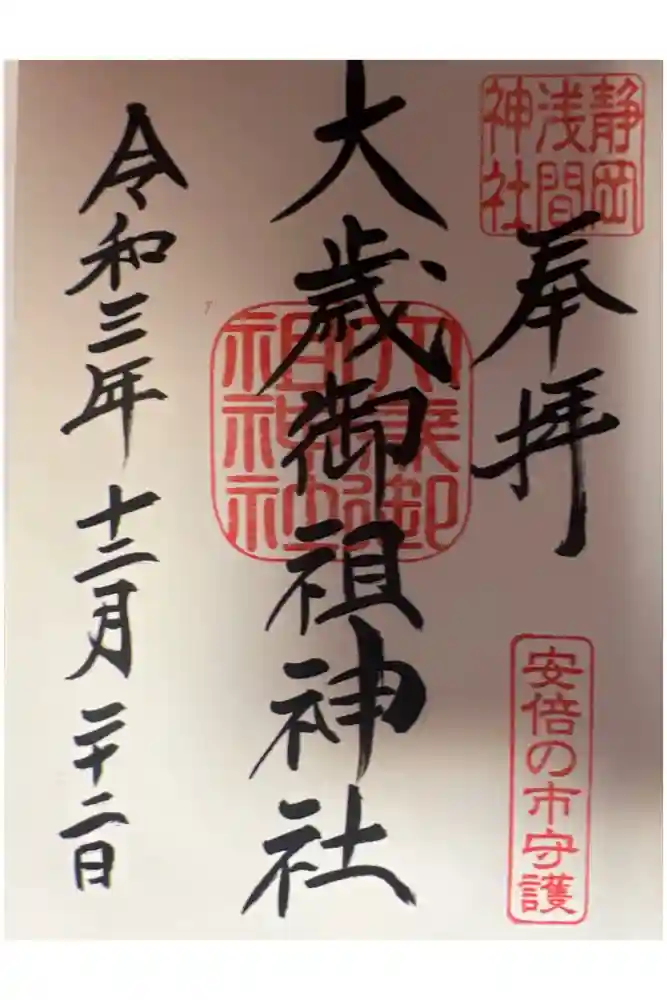 静岡
浅間
神社
奉拝
安倍の市守護
大歳御祖神社
令和三年十二月二十二日